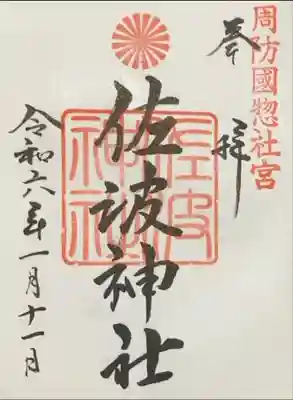 周防國惣社宮
奉拝
佐波神社
佐波神社
令和六年一月十一日